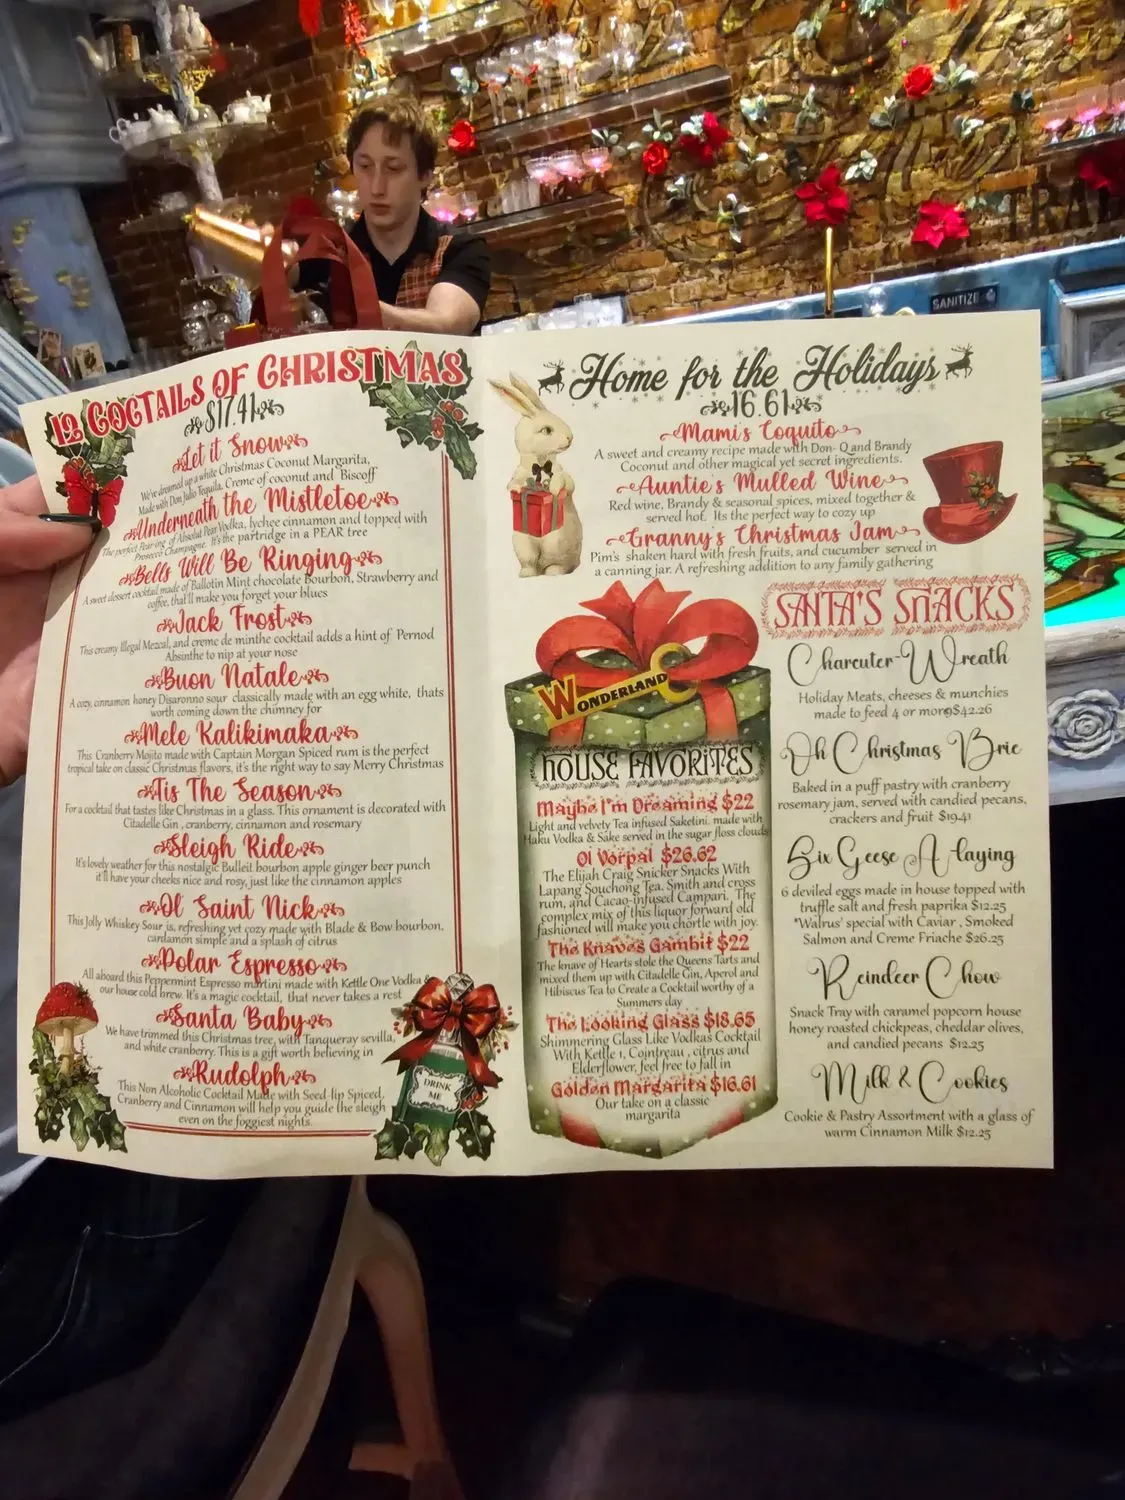 12 COCTAILS OF CHRISTMAS
$17.41
Let it Snow
We've dreamed up a white Christmas Coconut Margarita,
Made with Don Julio Tequila, Creme of coconut and Biscoff
Underneath the Mistletoe
The perfect Pear-ing of Absolut Pear Vodka, lychee cinnamon and topped with
Prosecco Champagne. It's the partridge in a PEAR tree
Bells Will Be Ringing
A sweet dessert cocktail made of Ballotin Mint chocolate Bourbon, Strawberry and
coffee, that'll make you forget your blues
Jack Frost
This creamy Illegal Mezcal, and creme de minthe cocktail adds a hint of Pernod
Absinthe to nip at your nose
Buon Natale
A cozy, cinnamon honey Disaronno sour classically made with an egg white, thats
worth coming down the chimney for
Mele Kalikimaka
This Cranberry Mojito made with Captain Morgan Spiced rum is the perfect
tropical take on classic Christmas flavors, it's the right way to say Merry Christmas
Tis The Season
For a cocktail that tastes like Christmas in a glass. This ornament is decorated with
Citadelle Gin , cranberry, cinnamon and rosemary
Sleigh Ride
It's lovely weather for this nostalgic Bulleit bourbon apple ginger beer punch
it'll have your cheeks nice and rosy, just like the cinnamon apples
Ol Saint Nick
This Jolly Whiskey Sour is, refreshing yet cozy made with Blade & Bow bourbon,
cardamon simple and a splash of citrus
Polar Espresso
All aboard this Peppermint Espresso martini made with Kettle One Vodka &
our house cold brew. It's a magic cocktail, that never takes a rest
Santa Baby
We have trimmed this Christmas tree, with Tanqueray sevilla,
and white cranberry. This is a gift worth believing in
Rudolph
This Non Alcoholic Cocktail Made with Seed-lip Spiced,
Cranberry and Cinnamon will help you guide the sleigh
even on the foggiest nights.
DRINK
ME
Home for the Holidays
16.61
Mami's Coquito
A sweet and creamy recipe made with Don- Q and Brandy
Coconut and other magical yet secret ingredients.
Auntie's Mulled Wine
Red wine, Brandy & seasonal spices, mixed together &
served hot. Its the perfect way to cozy up
Granny's Christmas Jam
Pim's shaken hard with fresh fruits, and cucumber served in
a canning jar. A refreshing addition to any family gathering
WONDERLAND
HOUSE FAVORITES
Maybe I'm Dreaming $22
Light and velvety Tea infused Saketini. made with
Haku Vodka & Sake served in the sugar floss clouds
Ol Vorpal $26.62
The Elijah Craig Snicker Snacks With
Lapang Souchong Tea. Smith and cross
rum, and Cacao-infused Campari. The
complex mix of this liquor forward old
fashioned will make you chortle with joy.
The Knaves Gambit $22
The knave of Hearts stole the Queens Tarts and
mixed them up with Citadelle Gin, Aperol and
Hibiscus Tea to Create a Cocktail worthy of a
Summers day
The Looking Glass $18.65
Shimmering Glass Like Vodkas Cocktail
With Kettle 1, Cointreau , citrus and
Elderflower, feel free to fall in
Golden Margarita $16.61
Our take on a classic
margarita
SANTA'S SNACKS
Charcuter-Wreath
Holiday Meats, cheeses & munchies
made to feed 4 or more$42.26
Oh Christmas Brie
Baked in a puff pastry with cranberry
rosemary jam, served with candied pecans,
crackers and fruit $19.41
Six Geese A-laying
6 deviled eggs made in house topped with
truffle salt and fresh paprika $12.25
'Walrus' special with Caviar , Smoked
Salmon and Creme Friache $26.25
Reindeer Chow
Snack Tray with caramel popcorn house
honey roasted chickpeas, cheddar olives,
and candied pecans $12.25
Milk & Cookies
Cookie & Pastry Assortment with a glass of
warm Cinnamon Milk $12.25
SANITIZE